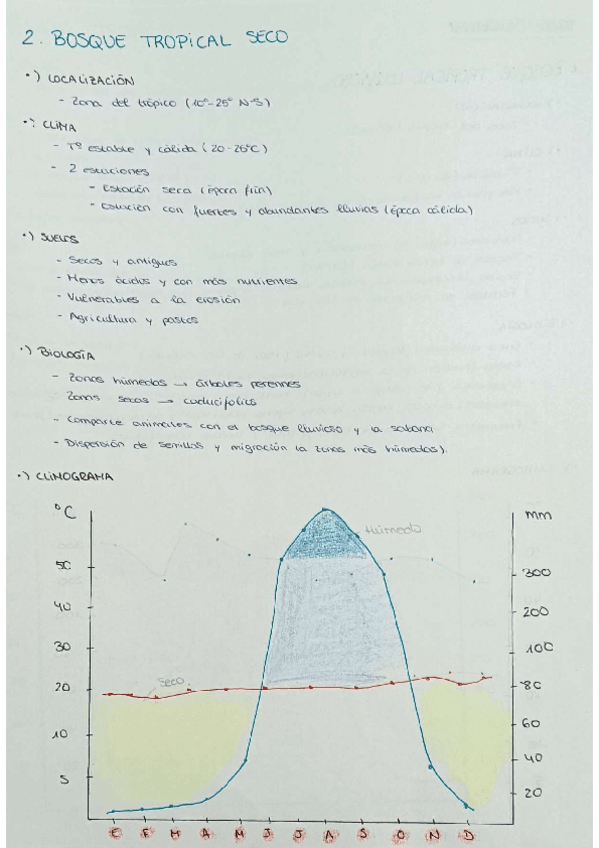 2. BOSQUE TROPICAL SECO
·) LOCALIZACIÓN
- Zona del trópico (10º-25º N-S)
·) CLIMA
- Tº estable y cálida (20-25ºC)
- 2 estaciones
- Estación seca (época fría)
- Estación con fuertes y abundantes lluvias (época cálida)
·) SUELOS
- Secos y antiguos
- Menos ácidos y con más nutrientes
- Vulnerables a la erosión
- Agricultura y pastos
·) BIOLOGÍA
- Zonas húmedas → árboles perennes
Zonas secas → caducifolios
- Comparte animales con el bosque lluvioso y la sabana
- Dispersión de semillas y migración (a zonas más húmedas).
·) CLIMOGRAMA
ºC
mm
Húmedo
50
300
40
200
30
100
Seco
20
80
60
10
40
5
20
E F M A M J J A S O N D